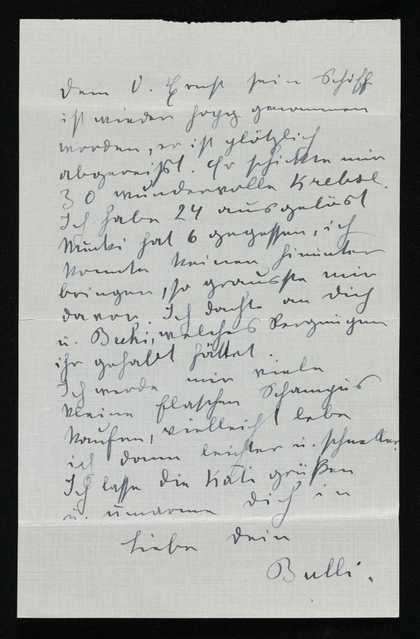 Dem O. Ernst sein Schiff
ist wieder hopp genommen
worden, er ist plötzlich
abgereist. Er schickte mir
30 wundervolle Krebse.
Ich habe 24 ausgelöst
Mucki hat 6 gegessen, ich
konnte keinen hinunter
bringen, so grauste mir
davor. Ich dachte an Dich
u. Bucki, welches Vergnügen
ihr gehabt hättet.
Ich werde mir viele
kleine Flaschen Schampus
kaufen, vielleicht lebe
ich dann leichter u. schneller.
Ich lasse die Kati grüßen
u. umarme Dich in
Liebe Dein
Bulli.